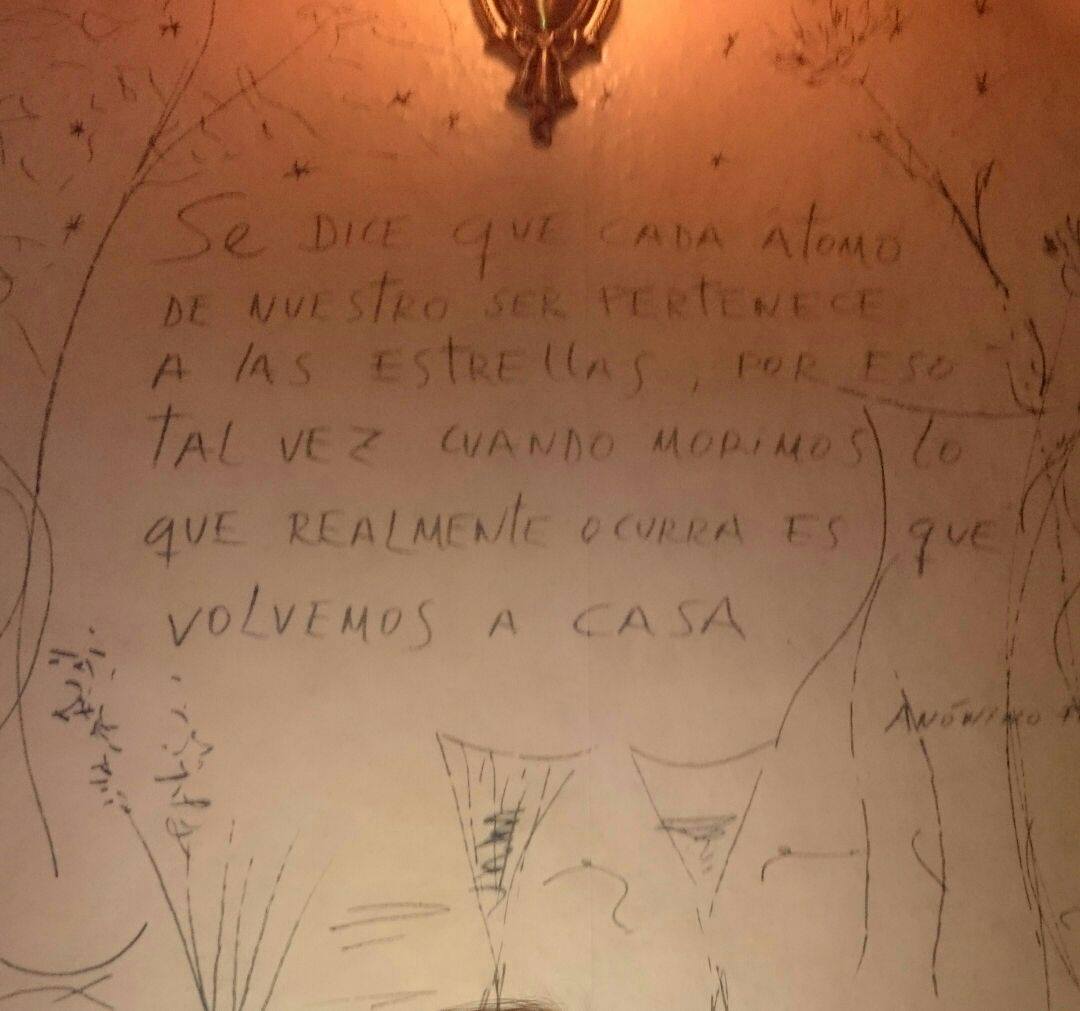 Se DICE qUE CADA Átomo
DE NUESTRO SER PERTENECE
A lAS ESTREllAS, POR ESO
TAL VEZ CUANDO MORIMOS lo
qUE REALMENTE OCURRA ES qUE
VOLVEMOS A CASA
ANÓNIMO